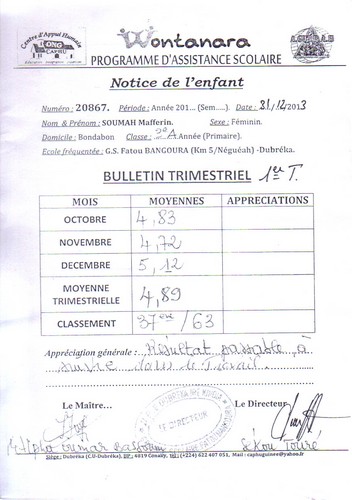 Centre d'Appui Humain
LONG
CAHRU
Wontanara
PROGRAMME D'ASSISTANCE SCOLAIRE
Notice de l'enfant
Numéro : 20867. Période : Année 201... (Sem.....). Date : 31/12/2013
Nom & Prénom : SOUMAH Mafferin. Sexe : Féminin.
Domicile : Bondabon Classe : 2e A Année (Primaire).
Ecole fréquentée : G.S. Fatou BANGOURA (Km 5/Néguéah) -Dubréka.
BULLETIN TRIMESTRIEL 1er T.
MOIS MOYENNES APPRECIATIONS
OCTOBRE 4,83
NOVEMBRE 4,72
DECEMBRE 5,12
MOYENNE TRIMESTRIELLE 4,89
CLASSEMENT 37ème / 63
Appréciation générale : Résultat passable, à
suivre dans le Travail.
Le Maître... Le Directeur
LE DIRECTEUR
Sékou Touré
Siège : Dubréka (C.U-Dubréka), BP : 4019 Conakry, Tél : (+224) 622 407 051, Mail : caphuguinee@yahoo.fr